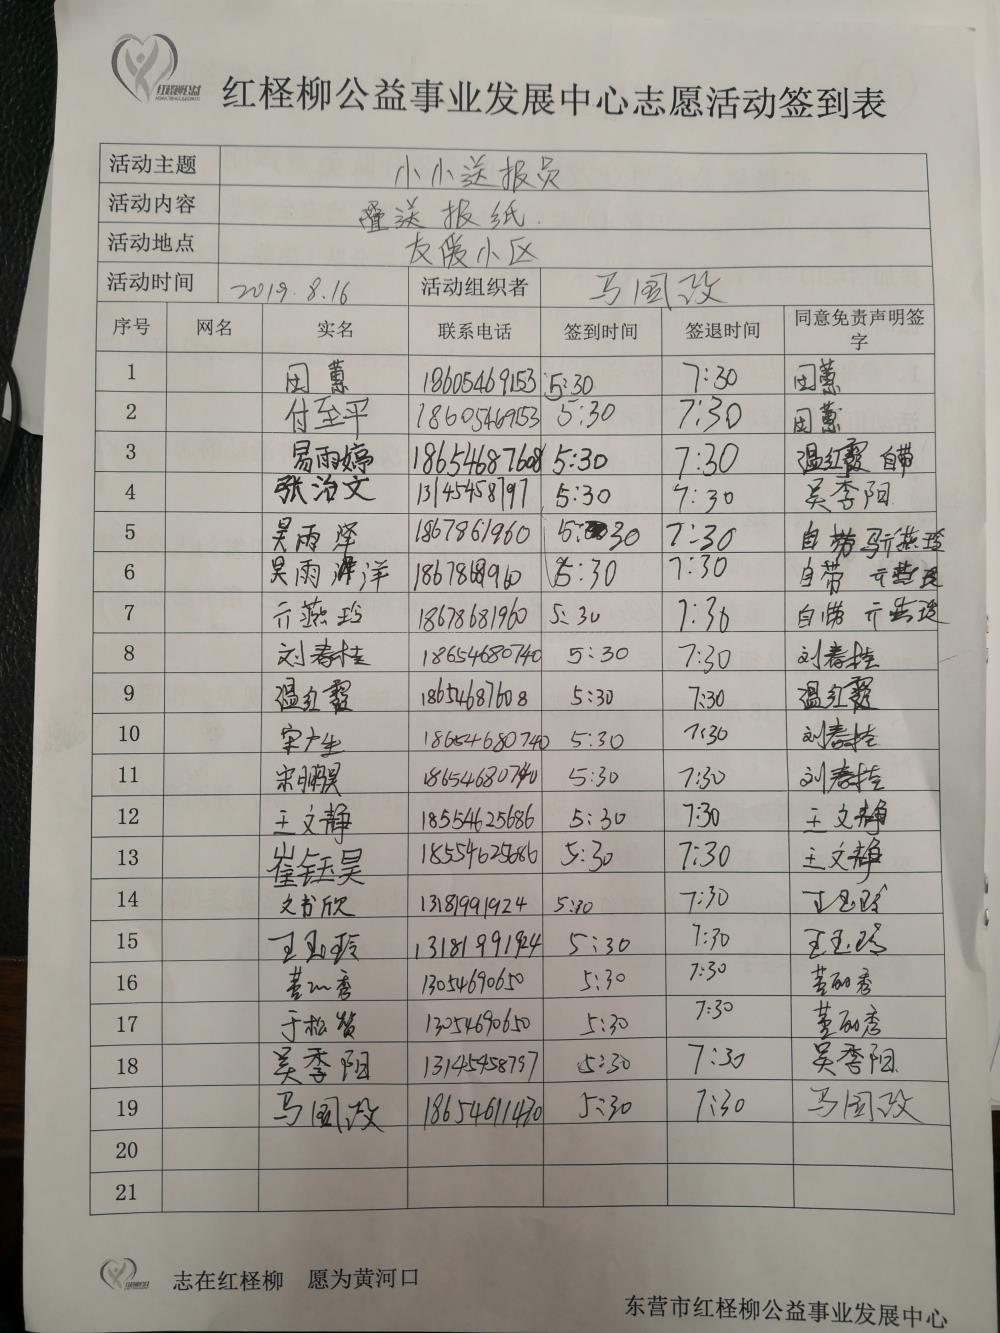 红柽柳公益
红柽柳公益事业发展中心志愿活动签到表
活动主题 小小送报员
活动内容 叠送报纸.
活动地点 友爱小区
活动时间 2019.8.16 活动组织者 马国政
序号 网名 实名 联系电话 签到时间 签退时间 同意免责声明签字
1 田蕙 18605469153 5:30 7:30 田蕙
2 付至平 18605469153 5:30 7:30 田蕙
3 易雨婷 18654687608 5:30 7:30 温红霞 自带
4 张治文 13145458797 5:30 7:30 吴季阳
5 吴雨泽 1867861960 5:30 7:30 自带 亓燕玲
6 吴雨洋 186786960 5:30 7:30 自带 亓燕玲
7 亓燕玲 18678681960 5:30 7:30 自带 亓燕玲
8 刘春桂 18654680740 5:30 7:30 刘春桂
9 温红霞 18654687608 5:30 7:30 温红霞
10 宋广生 18654680740 5:30 7:30 刘春桂
11 宋鹏昊 18654680740 5:30 7:30 刘春桂
12 王文静 18554625686 5:30 7:30 王文静
13 崔钰昊 18554625686 5:30 7:30 王文静
14 文书欣 13181991924 5:30 7:30 王玉玲
15 王玉玲 13181991924 5:30 7:30 王玉玲
16 秀 13054690650 5:30 7:30 秀
17 于松 13054690650 5:30 7:30 秀
18 吴季阳 13145458797 5:30 7:30 吴季阳
19 马国政 18654611470 5:30 7:30 马国政
20
21
志在红柽柳 愿为黄河口
东营市红柽柳公益事业发展中心